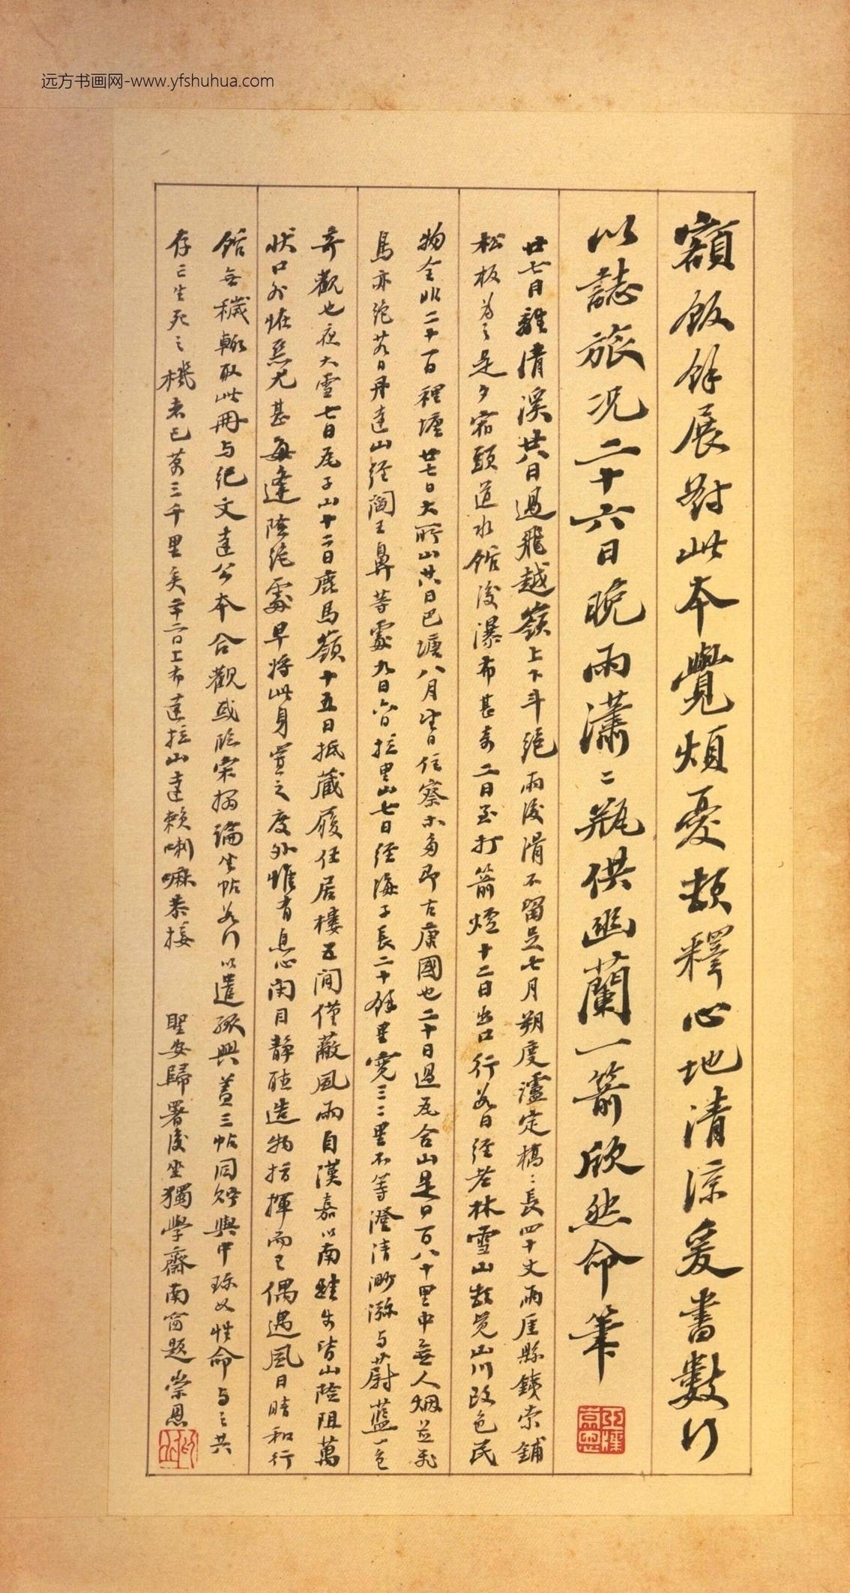 远方书画网-www.yfshuhua.com
額飯餘展對此本覺煩憂頓釋心地清涼爰書數行
以誌旅况二十六日晚雨瀟〻瓶供幽蘭一箭欣然命筆
廿七日離清溪廿八日過飛越嶺上下斗絕雨後滑不留足七月朔度瀘定橋〻長四十丈兩厓縣鐵索鋪
松板為之是夕宿頭道水館後瀑布甚奇二日至打箭爐十二日出口行
若日經 林雪山 覺山川改色民
物全
二十日 裡塘廿七日大所山廿八日巴塘八月 日住察木多即古康國也二十日過瓦合山是日百八十里中無人烟並飛
鳥亦絕 日丹達山經閻王鼻等處九月 日拉里山七日經海子長二十餘里寬三二里不等澄清渺瀰与蔚藍一色
奇觀也夜大雪七日瓦子山十二日鹿馬嶺十五日抵藏履任居樓五間僅蔽風雨自漢嘉以南 皆山險阻萬
狀口外怪惡尤甚每逢險絕處早將此身置之度外惟有息心閉目靜聽造物指揮而已偶遇風日晴和行
館無穢輒取此冊与紀文達公本合觀或臨宋搨論坐帖 行以遣孤興蓋三帖同 輿中 以性命与之共
存亡生死之機者已萬三千里矣 日上布達拉山達賴喇嘛恭接 聖安歸署後坐獨學齋南窗題 崇恩